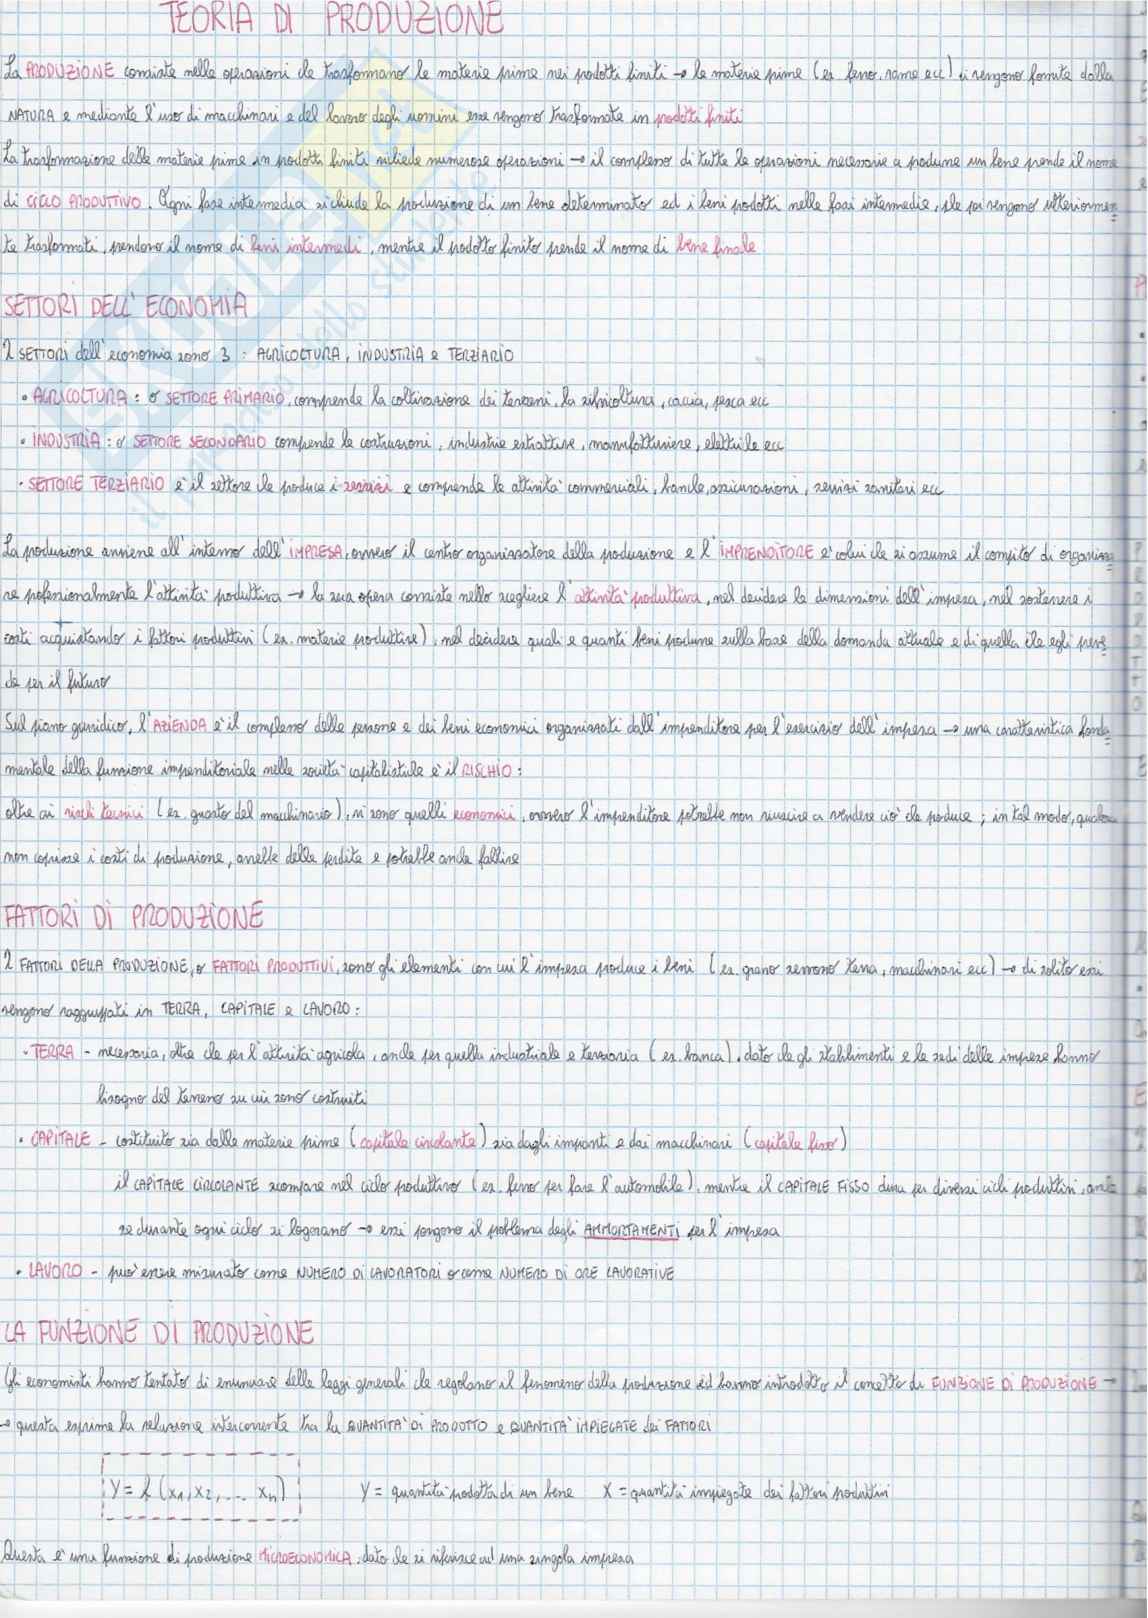 TEORIA DI PRODUZIONE
La PRODUZIONE consiste nelle operazioni che trasformano le materie prime nei prodotti finiti → le materie prime (es. ferro, rame ecc) ci vengono fornite dalla
NATURA e mediante l'uso di macchinari e del lavoro degli uomini esse vengono trasformate in prodotti finiti
La trasformazione delle materie prime in prodotti finiti richiede numerose operazioni → il complesso di tutte le operazioni necessarie a produrre un bene prende il nome
di CICLO PRODUTTIVO. Ogni fase intermedia richiude la produzione di un bene determinato ed i beni prodotti nelle fasi intermedie, che poi vengono ulteriormen=
te trasformati, prendono il nome di beni intermedi, mentre il prodotto finito prende il nome di bene finale
SETTORI DELL'ECONOMIA
I SETTORI dell'economia sono 3 : AGRICOLTURA, INDUSTRIA e TERZIARIO
• AGRICOLTURA : o SETTORE PRIMARIO, comprende la coltivazione dei terreni, la silvicoltura, caccia, pesca ecc
• INDUSTRIA : o SETTORE SECONDARIO comprende le costruzioni, industrie estrattive, manifatturiere, elettriche ecc
• SETTORE TERZIARIO è il settore che produce i servizi e comprende le attività commerciali, banche, assicurazioni, servizi sanitari ecc
La produzione avviene all'interno dell'IMPRESA, ovvero il centro organizzatore della produzione e l'IMPRENDITORE è colui che si assume il compito di organizza=
re professionalmente l'attività produttiva → la sua opera consiste nello scegliere l'attività produttiva, nel decidere le dimensioni dell'impresa, nel sostenere i
costi acquistando i fattori produttivi (es. materie produttive), nel decidere quali e quanti beni produrre sulla base della domanda attuale e di quella che egli preve=
de per il futuro
Sul piano giuridico, l'AZIENDA è il complesso delle persone e dei beni economici organizzati dall'imprenditore per l'esercizio dell'impresa → una caratteristica fonda=
mentale della funzione imprenditoriale nelle società capitalistiche è il RISCHIO :
oltre ai rischi tecnici (es. guasto del macchinario), vi sono quelli economici, ovvero l'imprenditore potrebbe non riuscire a vendere ciò che produce ; in tal modo, qualora
non coprisse i costi di produzione, avrebbe delle perdite e potrebbe anche fallire
FATTORI DI PRODUZIONE
I FATTORI DELLA PRODUZIONE, o FATTORI PRODUTTIVI, sono gli elementi con cui l'impresa produce i beni (es. grano servono terra, macchinari ecc) → di solito essi
vengono raggruppati in TERRA, CAPITALE e LAVORO :
• TERRA - necessaria, oltre che per l'attività agricola, anche per quella industriale e terziaria (es. banca), dato che gli stabilimenti e le sedi delle imprese hanno
bisogno del terreno su cui sono costruiti
• CAPITALE - costituito sia dalle materie prime (capitale circolante) sia dagli impianti e dai macchinari (capitale fisso)
il CAPITALE CIRCOLANTE scompare nel ciclo produttivo (es. ferro per fare l'automobile), mentre il CAPITALE FISSO dura per diversi cicli produttivi, anc=
se durante ogni ciclo si logorano → essi pongono il problema degli AMMORTAMENTI per l'impresa
• LAVORO - può essere misurato come NUMERO DI LAVORATORI o come NUMERO DI ORE LAVORATIVE
LA FUNZIONE DI PRODUZIONE
Gli economisti hanno tentato di enunciare delle leggi generali che regolano il fenomeno della produzione ed hanno introdotto il concetto di FUNZIONE DI PRODUZIONE →
→ questa esprime la relazione intercorrente tra la QUANTITÀ DI PRODOTTO e QUANTITÀ IMPIEGATE dei FATTORI
Y = f (x1, x2, .... xn) Y = quantità prodotta di un bene X = quantità impiegate dei fattori produttivi
Questa è una funzione di produzione MICROECONOMICA, dato che si riferisce ad una singola impresa